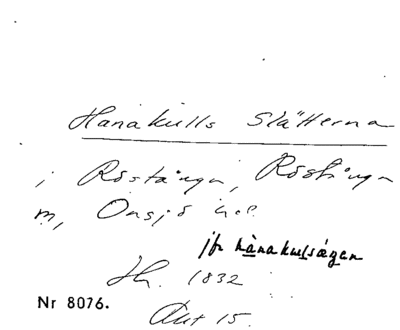 Hanakulls Slätterna
i Röstånga, Röstånga
m, Onsjö hd.
jfr hànakulságan
Sk. 1832
Nr 8076.
Akt 15.